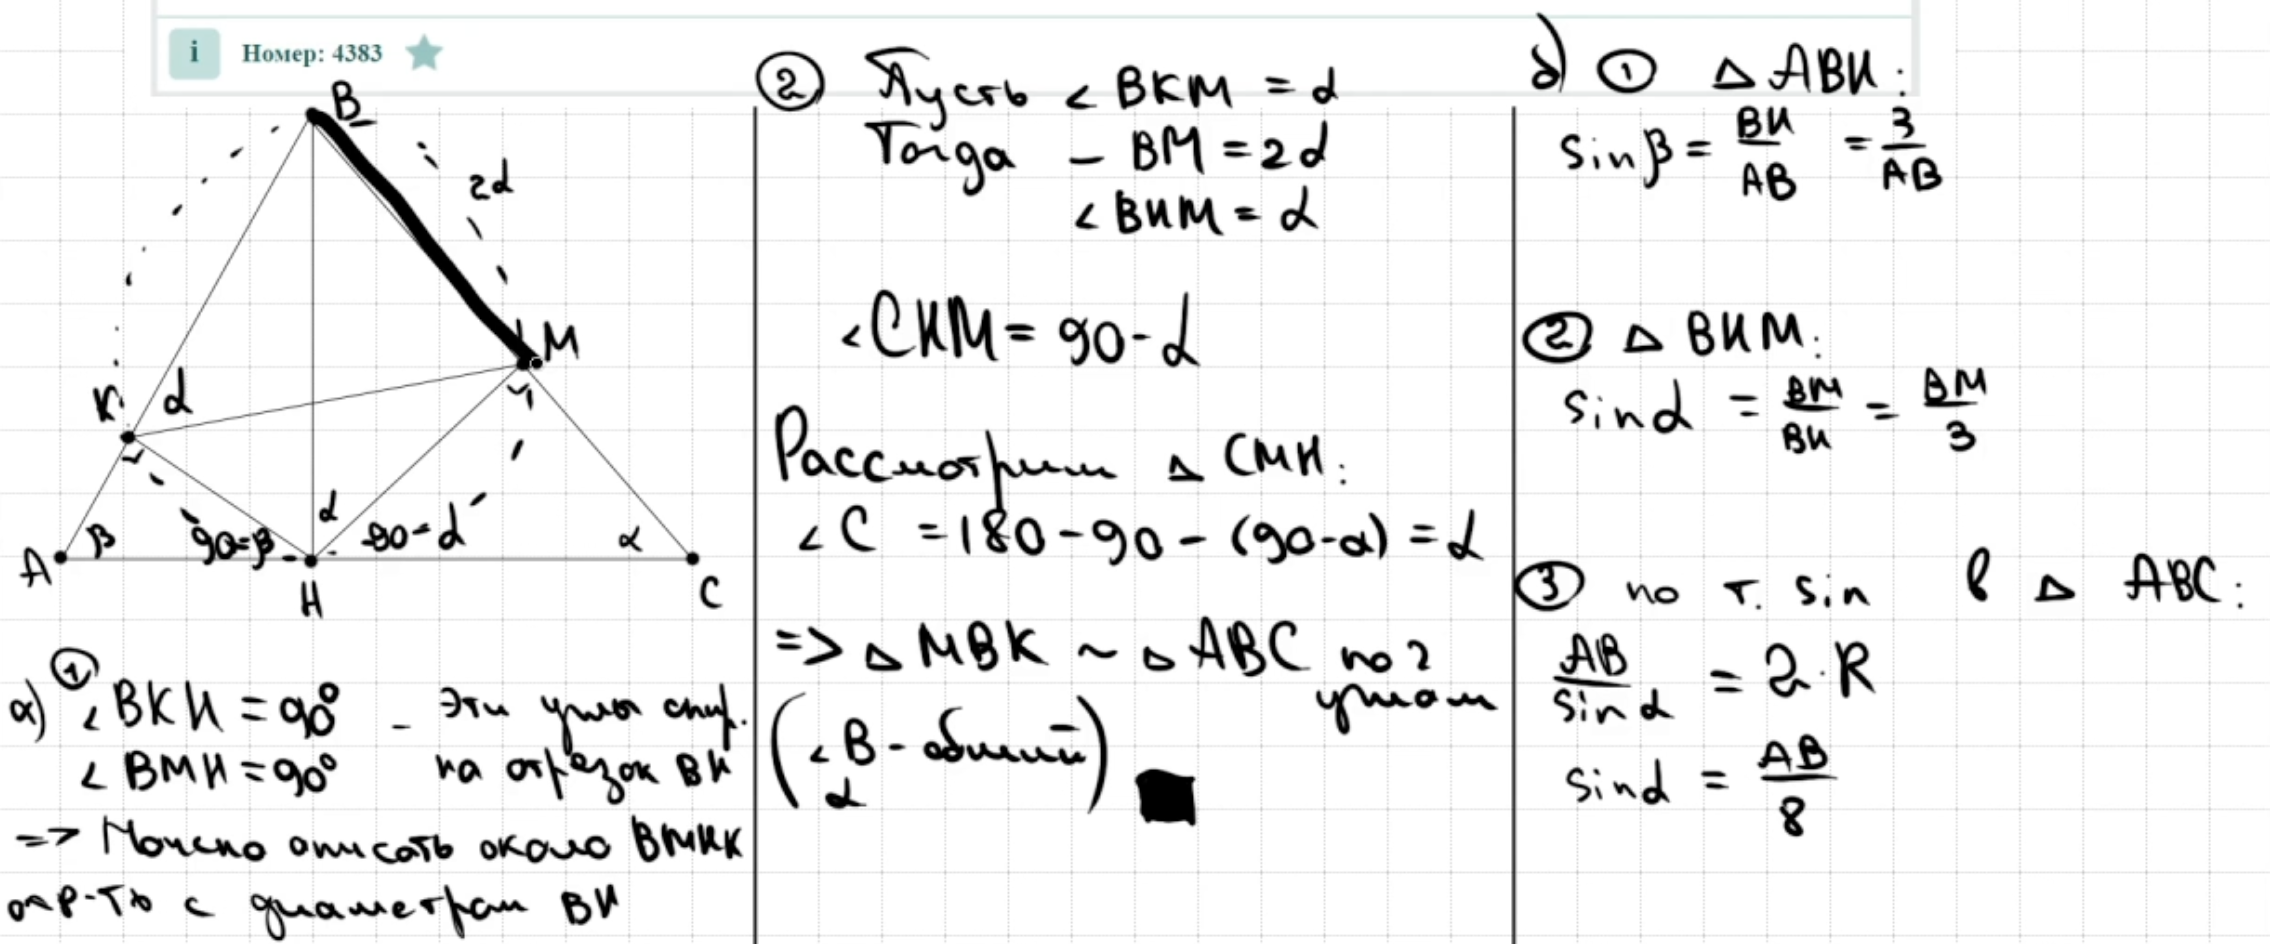 i Номер: 4383
B
2α
M
K
α
β
90-β
α
90-α
α
A
H
C
а) ① ∠BKH = 90° - Эти углы опир.
∠BMH = 90° на отрезок BH
=> Можно описать около BMHK
окр-ть с диаметром BH
② Пусть ∠BKM = α
Тогда ◡ BM = 2α
∠BHM = α
∠CHM = 90-α
Рассмотрим △ CMH:
∠C = 180-90-(90-α) = α
=> △ MBK ~ △ ABC по 2
углам
(∠B - общий)
α
б) ① △ ABH:
sin β = BH/AB = 3/AB
② △ BHM:
sin α = BM/BH = BM/3
③ по т. sin в △ ABC:
AB/sin α = 2·R
sin α = AB/8